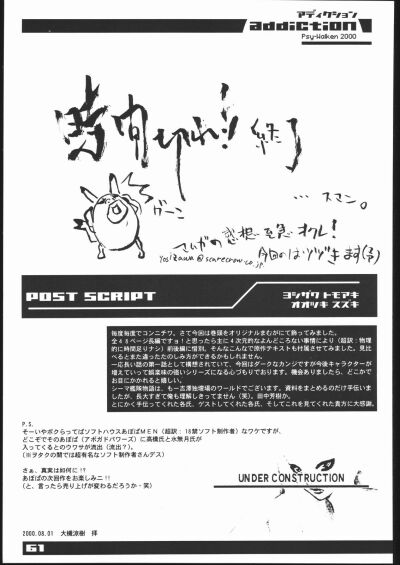 アディクション
addiction
Psy-Walken 2000
時間切れ！終了
…スマン。
グーニ
さいがの感想至急オクレ！
yosizawa@scarecrow.co.jp 今回のはつづきます(予)
POST SCRIPT
ヨシザワ トモアキ
オオツキ スズキ
毎度毎度でコンニチワ。さて今回は巻頭をオリジナルまむがにて飾ってみました。
全４８ページ長編ですョ！と思ったら主に４次元的なよんどころない事情により（超訳：物理
的に時間足りナシ）前後編に惜別。そんなこんなで原作テキストも付属させてみました。見比
べるとまた違ったたのしみ方ができるかもしれません。
一応長い話の第一話として構想されていて、今回はダークなカンジですが今後キャラクターが
増えていって娯楽味の強いシリーズになるらしいつもりでおります。機会ありましたら、どこかで
お目にかかれると嬉しい。
シーマ艦隊物語は、もー吉澤独壇場のワールドでございます。資料をまとめるのだけ手伝いま
したが、長大すぎて俺も理解しきってません（笑）。田中芳樹か。
とにかく手伝ってくれた各氏、ゲストしてくれた各氏、そしてこれを見てくれた貴方に大感謝。
P.S.
そーいやボクらってばソフトハウスあぼぱMEN（超訳：18禁ソフト制作者）なワケですが、
どこぞでそのあぼぱ（アボガドパワーズ）に高橋氏と水無月氏が
入ってくるとのウワサが流出（流出？）。
（※ヲタクの間では超有名なソフト制作者さんデス）
さぁ、真実は如何に!?
あぼぱの次回作をお楽しみニ!!
（と、言ったら売り上げが変わるだろうか・笑）
UNDER CONSTRUCTION
2000.08.01　大槻涼樹　拝
61